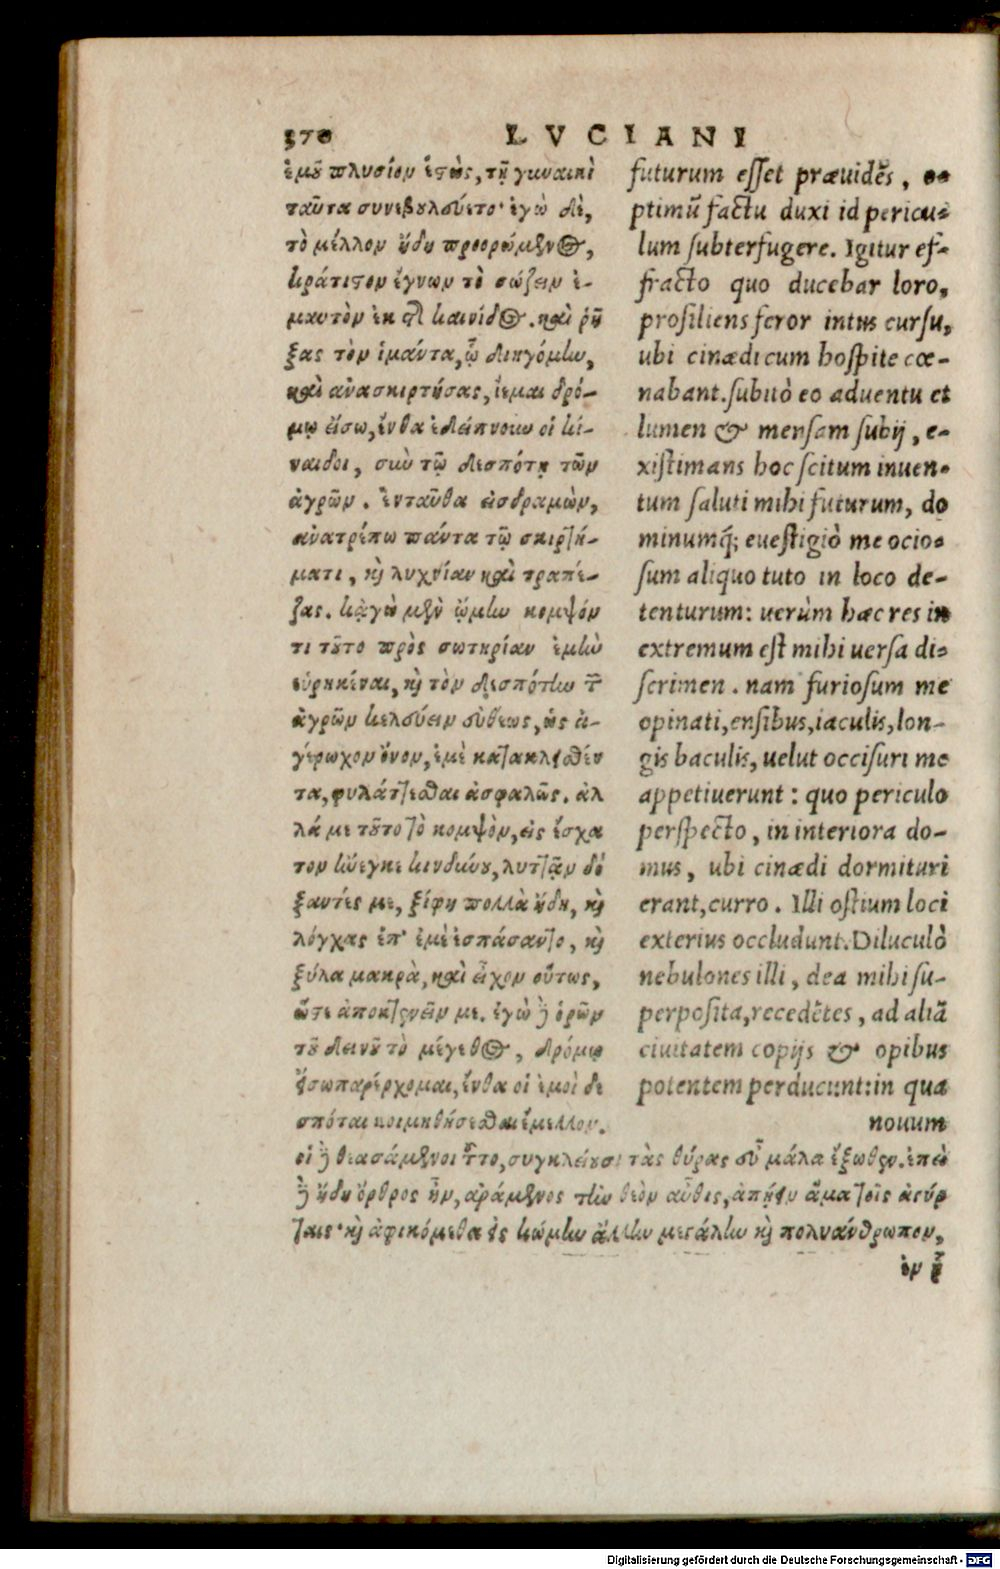 370
LVCIANI
ἐμοῦ πλυσίον ἑστὼς, τῇ γυναικὶ
ταῦτα συνεβουλεύετο· ἐγὼ δὲ,
τὸ μέλλον ἤδη προορώμενος,
κράτιστον ἔγνων τὸ σώζειν ἐ-
μαυτὸν ἐκ τῆς κοπίδος. καὶ ῥή
ξας τὸν ἱμάντα, ᾧ διηγόμην,
καὶ ἀνασκιρτήσας, ἵεμαι δρό-
μῳ εἴσω, ἔνθα ἐδείπνουν οἱ κί-
ναιδοι, σὺν τῷ δεσπότῃ τῶν
ἀγρῶν. ἐνταῦθα εἰσδραμὼν,
ἀνατρέπω πάντα τῷ σκιρτή-
ματι, καὶ λυχνίαν καὶ τραπέ-
ζας. κᾀγὼ μὲν ᾤμην κομψόν
τι τοῦτο πρὸς σωτηρίαν ἐμὴν
εὑρηκέναι, καὶ τὸν δεσπότην τῶν
ἀγρῶν κελεύειν εὐθέως, ὡς ἀ-
γέρωχον ὄνον, ἐμὲ κατακλεισθέν
τα, φυλάττεσθαι ἀσφαλῶς. ἀλ
λά με τοῦτο τὸ κομψὸν, εἰς ἔσχα
τον ἤνεγκε κινδύνου, λυττᾷν δό
ξαντές με, ξίφη πολλὰ ἤδη, καὶ
λόγχας ἐπ' ἐμὲ ἐσπάσαντο, καὶ
ξύλα μακρὰ, καὶ εἶχον οὕτως,
ὥστε ἀποκτενεῖν με. ἐγὼ δὲ ὁρῶν
τοῦ δεινοῦ τὸ μέγεθος, δρόμῳ
ἔσω παρέρχομαι, ἔνθα οἱ ἐμοὶ δε
σπόται κοιμηθήσεσθαι ἔμελλον.
οἱ δὲ θεασάμενοι τοῦτο, συγκλείουσι τὰς θύρας εὖ μάλα ἔξωθεν. ἐπεὶ
δὲ ἤδη ὄρθρος ἦν, ἀράμενος τὴν θεὸν αὖθις, ἀπῄειν ἅμα τοῖς ἀγύρ
ταις· καὶ ἀφικόμεθα ἐς κώμην ἄλλην μεγάλην καὶ πολυάνθρωπον,
ἐν ᾗ
futurum esset præuidẽs, o-
ptimũ factu duxi id pericu-
lum subterfugere. Igitur ef-
fracto quo ducebar loro,
prosiliens feror intus cursu,
ubi cinædi cum hospite cœ-
nabant. subitò eo aduentu et
lumen & mensam subij, e-
xistimans hoc scitum inuen-
tum saluti mihi futurum, do
minumq́; euestigiò me ocio-
sum aliquo tuto in loco de-
tenturum: uerùm hæc res in
extremum est mihi uersa di-
scrimen. nam furiosum me
opinati, ensibus, iaculis, lon-
gis baculis, uelut occisuri me
appetiuerunt: quo periculo
perspecto, in interiora do-
mus, ubi cinædi dormituri
erant, curro. Illi ostium loci
exterius occludunt. Diluculò
nebulones illi, dea mihi su-
perposita, recedẽtes, ad aliã
ciuitatem copijs & opibus
potentem perducunt: in qua
nouum
Digitalisierung gefördert durch die Deutsche Forschungsgemeinschaft - DFG